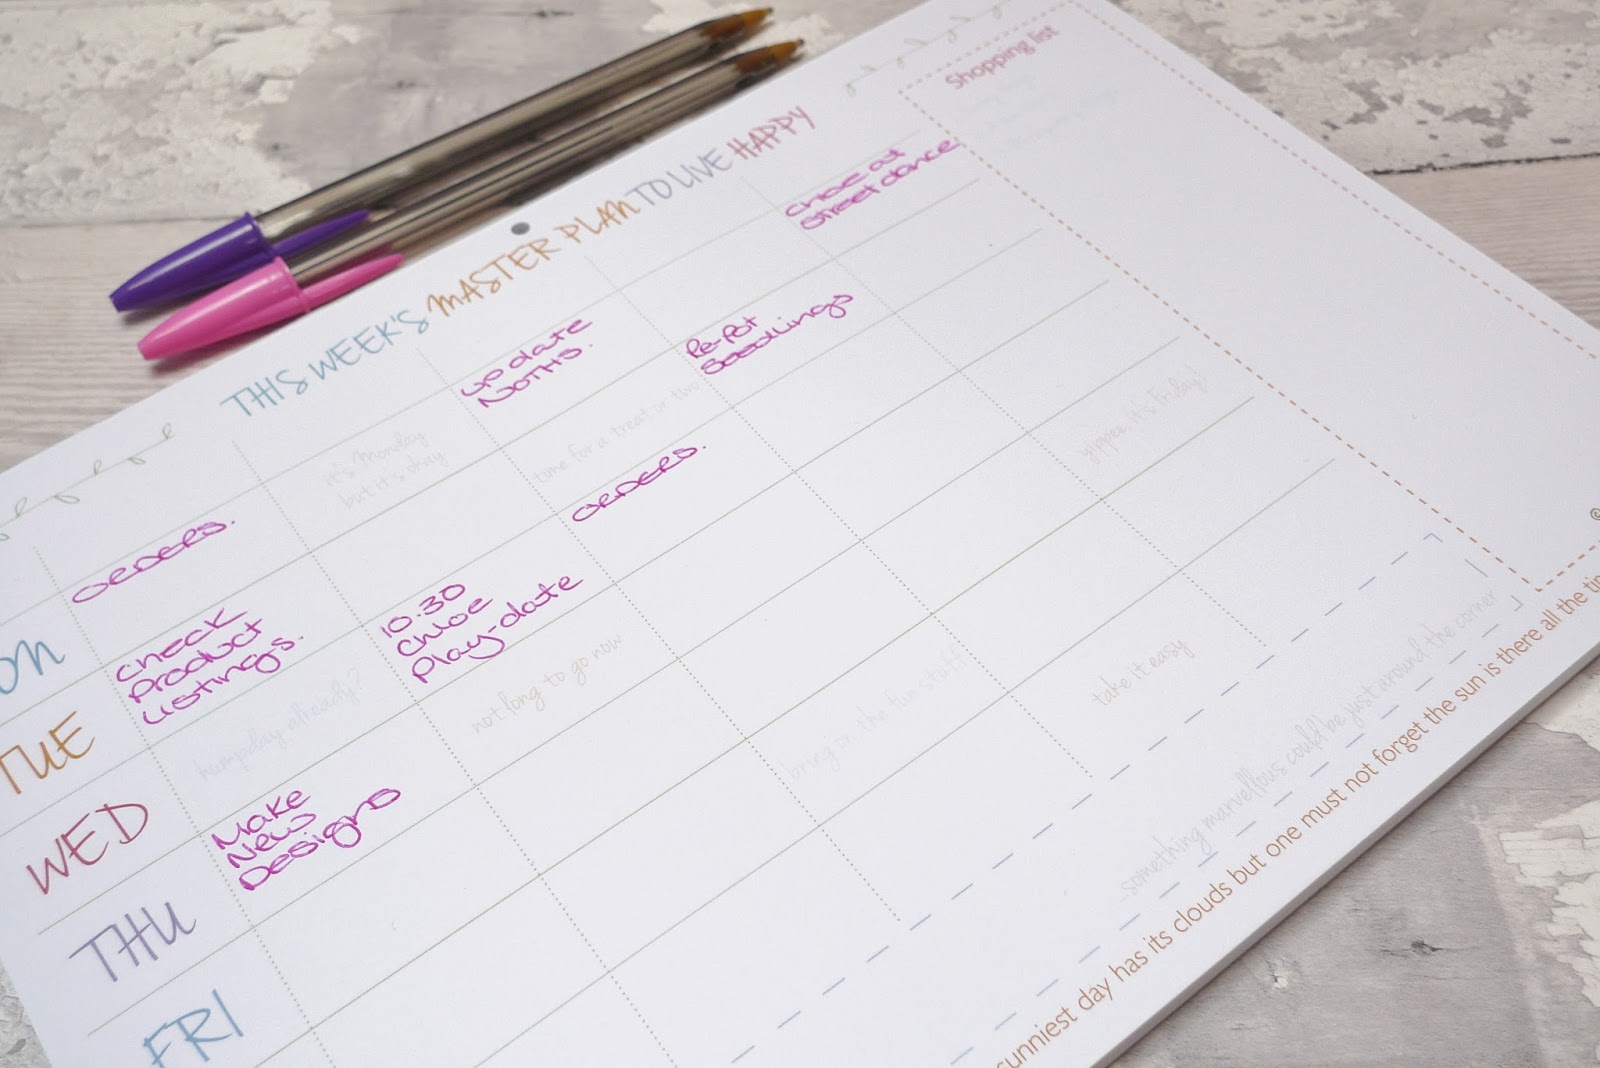 THIS WEEK'S MASTER PLAN TO LIVE HAPPY
Shopping list
ON
ORDERS.
it's Monday
but it's okay
update
NOTHS.
Chloe at
Street dance
TUE
Check
Product
Listings.
time for a treat or two
Re-Pot
Seedlings
WED
humpday already?
10.30
Chloe
Play-date
ORDERS.
THU
Make
New
Designs
not long to go now
FRI
yippee it's friday!
bring in the fun stuff
take it easy
something marvellous could be just around the corner
sunniest day has its clouds but one must not forget the sun is there all the tim